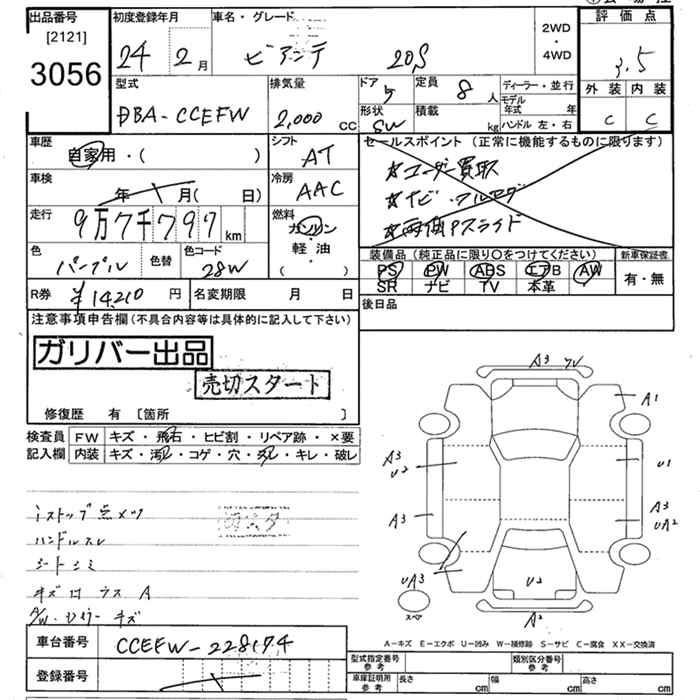 出品番号 [2121] 3056
初度登録年月 24年 2月
車名・グレード ビアンテ 20S
2WD・4WD
評価点 3.5
外装 C 内装 C
型式 DBA-CCEFW
排気量 2,000 CC
ドア 5 定員 8人
形状 SW 積載 kg
ディーラー・並行
モデル年式 年
ハンドル 左・右
車歴 自家用・( )
シフト AT
セールスポイント (正常に機能するものに限ります)
※ユーザー買取
※ナビ・フルセグ
※両側Pスライド
車検 年 月( 日)
冷房 AAC
走行 9万7千797 km
燃料 ガソリン 軽油 ( )
色 パープル 色替 色コード 28W
装備品 (純正品に限り〇をつけてください)
PS PW ABS エアB AW
SR ナビ TV 本革
新車保証書 有・無
R券 ¥14210円 名変期限 月 日
後日品
注意事項申告欄(不具合内容等は具体的に記入して下さい)
ガリバー出品
売切スタート
修復歴 有 [箇所 ]
検査員 FW キズ・飛石・ヒビ割・リペア跡・×要
記入欄 内装 キズ・汚れ・コゲ・穴・スレ・キレ・破レ
iストップ点メツ
ハンドルスレ
シートシミ
A3
A1
A3 U2
U1
A3
A3 UA2
UA3
U2
A2
スペア
A-キズ E-エクボ U-凹み W-補修跡 S-サビ C-腐食 XX-交換済
車台番号 CCEFW-228174
登録番号
型式指定番号 参考 類別区分番号 参考
車庫証明用 参考 長さ cm 幅 cm 高さ cm